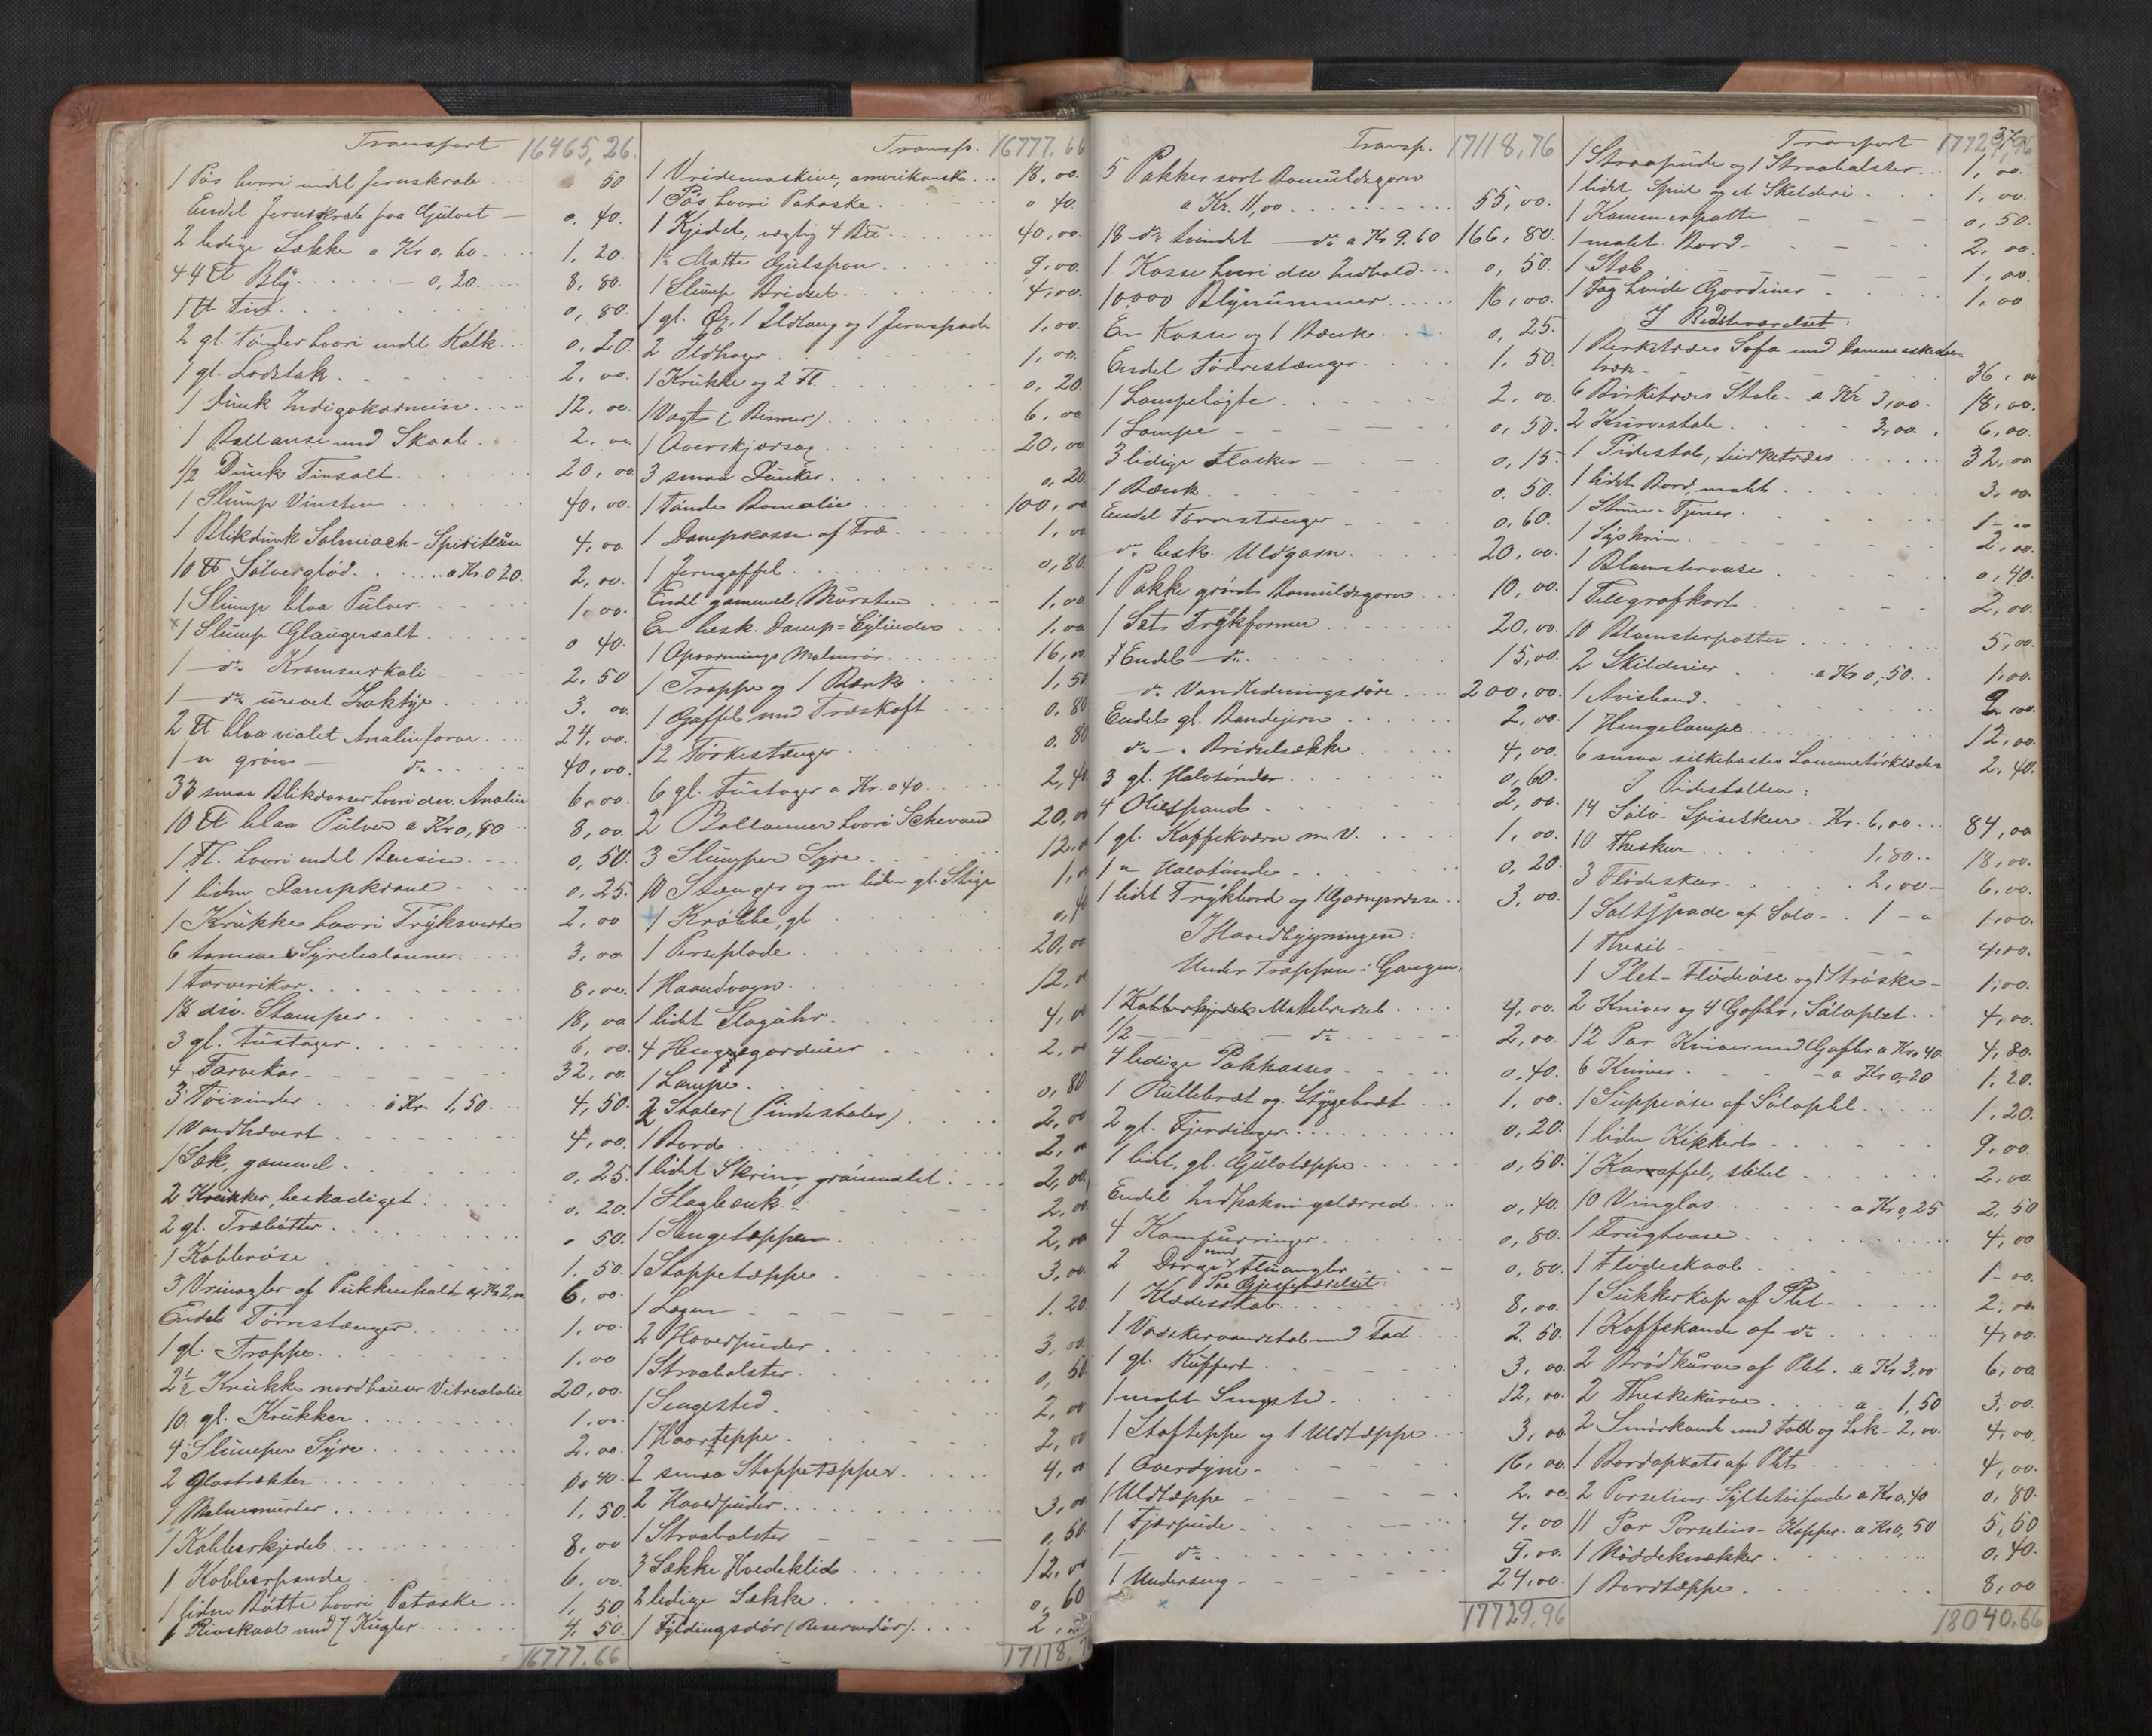 Transport 16465,26.
1 Pôs hvori endel Jernskrab ... 50
Endel Jernskrab paa Gulvet — 0,40.
2 ledige Sække a Kr 0,60 ... 1.20.
44 ℔ Bly ... — 0,20 ... 8,80.
1 ℔ Tin ... 0,80.
2 gl. Tønder hvori endel Kalk ... 0.20
1 gl. Lodstok ... 2,00.
1 Dunk Indigokarmin ... 12,00.
1 Ballanse med Skaale ... 2,00
1/2 Dunk Tinsalt ... 20,00
1 Slump Vinsten ... 40,00.
1 Blikdunk Salmiach-Spiritus 4,00
10 ℔ Sølverglød ... a Kr. 0 20. 2,00.
1 Slump blaa Pulver ... 1.00.
1 Slump Glaubersalt ... 0 40.
1 — do Kromsurkali — 2.50
1 — do urevet ... 3.00.
2 ℔ blaa violet Analinfarve ... 24,00.
1 " grøn — do ... 40,00.
33 smaa Blikdaaser hvori div. Analin 6,00.
10 ℔ blaa Pulver a Kr 0,80 8,00.
1 Fl. hvori endel Bensin ... 0,50.
1 liden Dampkrane - 0,25.
1 Krukke hvori Tryksverte 2,00
6 tomme Syreballoner ... 3,00
1 Farverikar ... 8,00.
18 div. Stamper ... 18,00
3 gl. Fustager ... 6,00.
4 Farvekar ... 32,00.
3 Tøivinder ... a Kr. 1,50 ... 4,50.
1 Vandhævert ... 4,00.
1 Sæk, gammel ... 0,25.
2 Krukker, beskadiget ... 0.20.
2 gl. Træbøtter ... 0 50.
1 Kobberøse ... 1.50.
3 Vrinagler af Pukkenholt a Kr 2,00 6,00.
Endel Tørrestænger ... 1,00.
1 gl. Trappe ... 1.00
2 1/2 Krukke nordhauser Vitreololie 20,00.
10 gl. Krukker ... 1.00.
4 Slumper Syre ... 2,00.
2 Glastrakter ... 0,40.
1 Malmmorter ... 1,50.
1 Kobberkjedel ... 8,00
1 Kobberpande ... 6,00.
1 liden Bøtte hvori Potaske ... 1,50
1 Rivskaal med 7 Kugler ... 4,50.
16777.66
Transp. 16777.66
1 Vridemaskine, amerikansk ... 18,00.
1 Pôs hvori Potaske ... 0 40.
1 Kjedel, vægtig 4 ... 40,00.
1/2 Matte Gulspon ... 9,00.
1 Slump Bridsel ... 4,00.
1 gl. Øx, 1 Ildtang og 1 Jernspade 1,00.
2 Ildhager ... 1,00.
1 Krukke og 2 Fl. ... 0,20.
1 Vægt (Bismer) ... 6,00
1 Overskjærsag ... 20,00
3 smaa Dunker ... 0,20
1 Tønde Bomolie ... 100,00
1 Dampkasse af Træ ... 1,00
1 Jerngaffel ... 0,80
Endel gammel Mursten ... 1,00
En besk. Damp=Cylinder ... 1,00
1 Opvarmings Malmrør ... 16,00
1 Trappe og 1 Bænk ... 1,50
1 Gaffel med Træskaft ... 0.80
12 Tørkestænger ... 0,80
6 gl. Fustager a Kr. 0 40 ... 2,40
2 Ballonner hvori Schevand 20,00
3 Slumper Syre ... 12,00
10 Stænger og en liden gl. Stige 1,00
1 Krabbe, gl. ... 0,40
1 Perseplade ... 20,00
1 Haandvogn ... 12,00
1 lidet Slaguhr ... 4,00
4 Hengegardiner ... 2,00
1 Lampe ... 0,80
2 Stoler (Pindestoler) ... 2,00
1 Bord ... 2,00
1 lidet Skrin, grønmalet ... 2,00
1 Slagbænk ... 2,00
1 Sengetæppe ... 2,00
1 Stoppetæppe ... 3,00
1 Lagen ... 1.20
2 Hovedpuder ... 3,00
1 Straabolster ... 0,50
1 Sengested ... 2,00
1 Haarteppe ... 2,00
2 smaa Stoppetæpper ... 4,00
2 Hovedpuder ... 3,00
1 Straabolster ... 0.50
3 Sække Hvedeklid ... 12,00
2 ledige Sække ... 0,60
1 Fyldingsdør (Reservedør) ... 2,00
17118,7
Transp. 17118,76
5 Pakker sort Bomuldsgarn
a Kr. 11,00 ... 55,00.
18 do tvindet — do a Kr 9.60 166,80.
1 Kasse hvori div. Indhold ... 0,50.
10000 Blynummer ... 16,00.
En Kasse og 1 Bænk ... 0,25.
Endel Tørrestænger ... 1.50
1 Lampeløgte ... 2,00.
1 Lampe ... 0,50.
3 ledige Flasker ... 0,15.
1 Bænk ... 0.50.
Endel Tørrestænger ... 0,60.
do besk. Uldgarn ... 20,00.
1 Pakke grønt Bomuldsgarn ... 10,00.
1 Set Trykformer ... 20,00.
1 Endel — do ... 15,00.
do Vandledningsrøre ... 200,00.
Endel gl. Bandejern ... 2,00.
do — " Bridselsække ... 4,00.
3 gl. Halvtønder ... 0,60.
4 Oliespand ... 2,00.
1 gl. Kaffekværn m. V. ... 1,00.
1 " Halvtønde ... 0,20.
1 lidet Trykbord og 1 Garnpresse ... 3,00.
I Hovedbygningen:
Under Trappen i Gangen.
1 Kobberkjedel Mattebridsel ... 4,00.
1/2 — do ... 2,00.
4 ledige Pakkasser ... 0,40.
1 Rullebræt og Strygebræt ... 1,00.
2 gl. Fjerdinger ... 0,20.
1 lidet, gl. Gulvtæppe ... 0,50.
Endel Indpakningslærred ... 0,40.
4 Kompurringer ... 0,80.
2 Dorger med Stuangler ... 0,80.
Paa Gjesteværelset:
1 Klædesskab ... 8,00.
1 Vadskevandstol med Fad ... 2.50.
1 gl. Kuffert ... 3,00.
1 malet Sengested ... 12,00.
1 Stofteppe og 1 Uldtæppe ... 3,00
1 Overdyne ... 16,00.
1 Uldtæppe ... 2,00.
1 Fjærpude ... 4,00
1 — do ... 9,00.
1 Underseng ... 24,00.
17729.96
37
Transport 17729,96
1 Straapude og 1 Straabolster ... 1,00.
1 lidet Speil og et Skilderi ... 1,00.
1 Kammerpotte ... 0,50.
1 malet Bord ... 2,00.
1 Stol ... 1,00.
1 Fag hvide Gardiner ... 1,00
I Bedstværelset:
1 Birketræes Sofa med Dammaskesbe-
træk ... 36,00
6 Birketræes Stole - a Kr 3,00 18,00.
2 Kurvestole ... 3,00 6,00.
1 Pidestal, birketræes ... 32,00
1 lidet Bord, malt ... 3,00.
1 Stum-Tjener ... 1-00
1 Syskrin ... 2,00.
1 Blomstervase ... 0,40.
1 Telegrafkort ... 2,00.
10 Blomsterpotter ... 5,00.
2 Skilderier ... a Kr 0,50 ... 1,00.
1 Avisbaand ... 2,00.
1 Hengelampe ... 12,00.
6 smaa silkebastes Lommetørklæder 2.40.
I Pidestallen:
14 Sølv-Spiseskeer. Kr. 6,00 ... 84,00
10 Theskeer ... 1,80 ... 18,00.
3 Flødeskeer ... 2,00 — 6,00.
1 Saltspade af Sølv ... 1 — " 1,00.
1 Thesil ... 4,00.
1 Plet-Flødeøse og 1 Strøske — 1,00.
2 Knive og 4 Gafler, Sølvplet ... 4,00.
12 Par Kniver med Gafler a Kr 0 40. 4,80.
6 Kniver ... a Kr 0,20 1,20.
1 Suppeøse af Sølvplet ... 1,20.
1 liden Kikkert ... 9,00.
1 Karaffel, slebet ... 2,00.
10 Vinglas ... a Kr 0,25 2,50
1 Frugtvase ... 4,00
1 Flødeskaal ... 1-00.
1 Sukkerkop af Plet ... 2,00.
1 Kaffekande af do ... 4,00.
2 Brødkurve af Plet. a Kr. 3,00 6,00.
2 Theskekurve ... a 1,50 3,00.
2 Smørkande med Fad og Lok - 2,00. 4,00.
1 Bordopsats af Plet ... 4,00.
2 Porselins Syltetøifade a Kr 0,40 0,80.
11 Par Porselins-Kopper. a Kr 0,50 5,50
1 Nøddeknækker ... 0,40.
1 Bordtæppe ... 8,00
18040.66